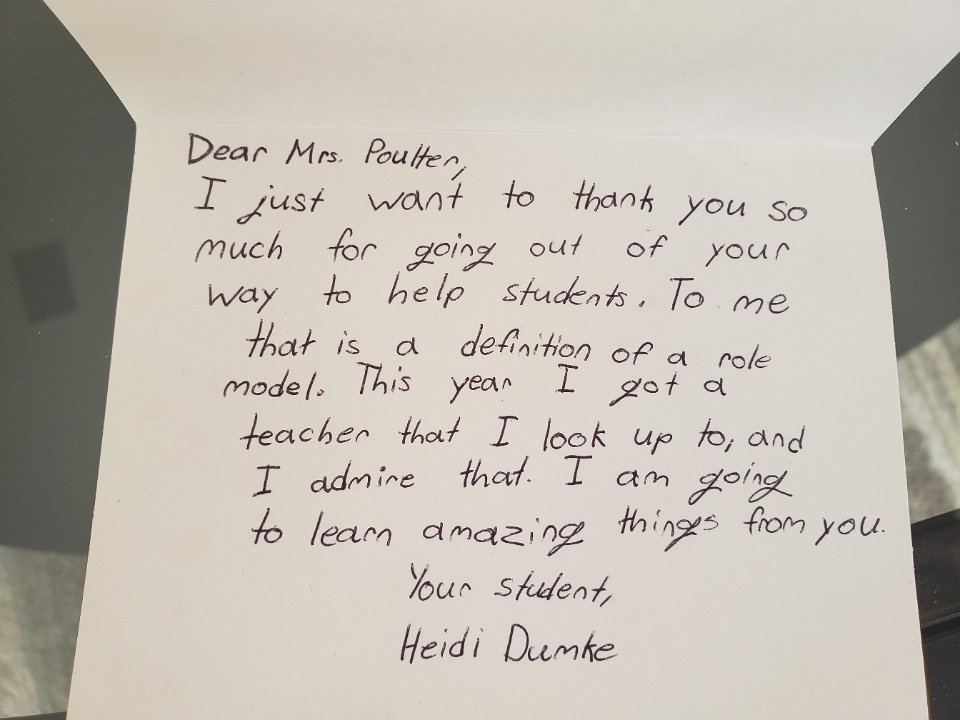 Dear Mrs. Poulter,
I just want to thank you so
much for going out of your
way to help students. To me
that is a definition of a role
model. This year I got a
teacher that I look up to, and
I admire that. I am going
to learn amazing things from you.
Your student,
Heidi Dumke